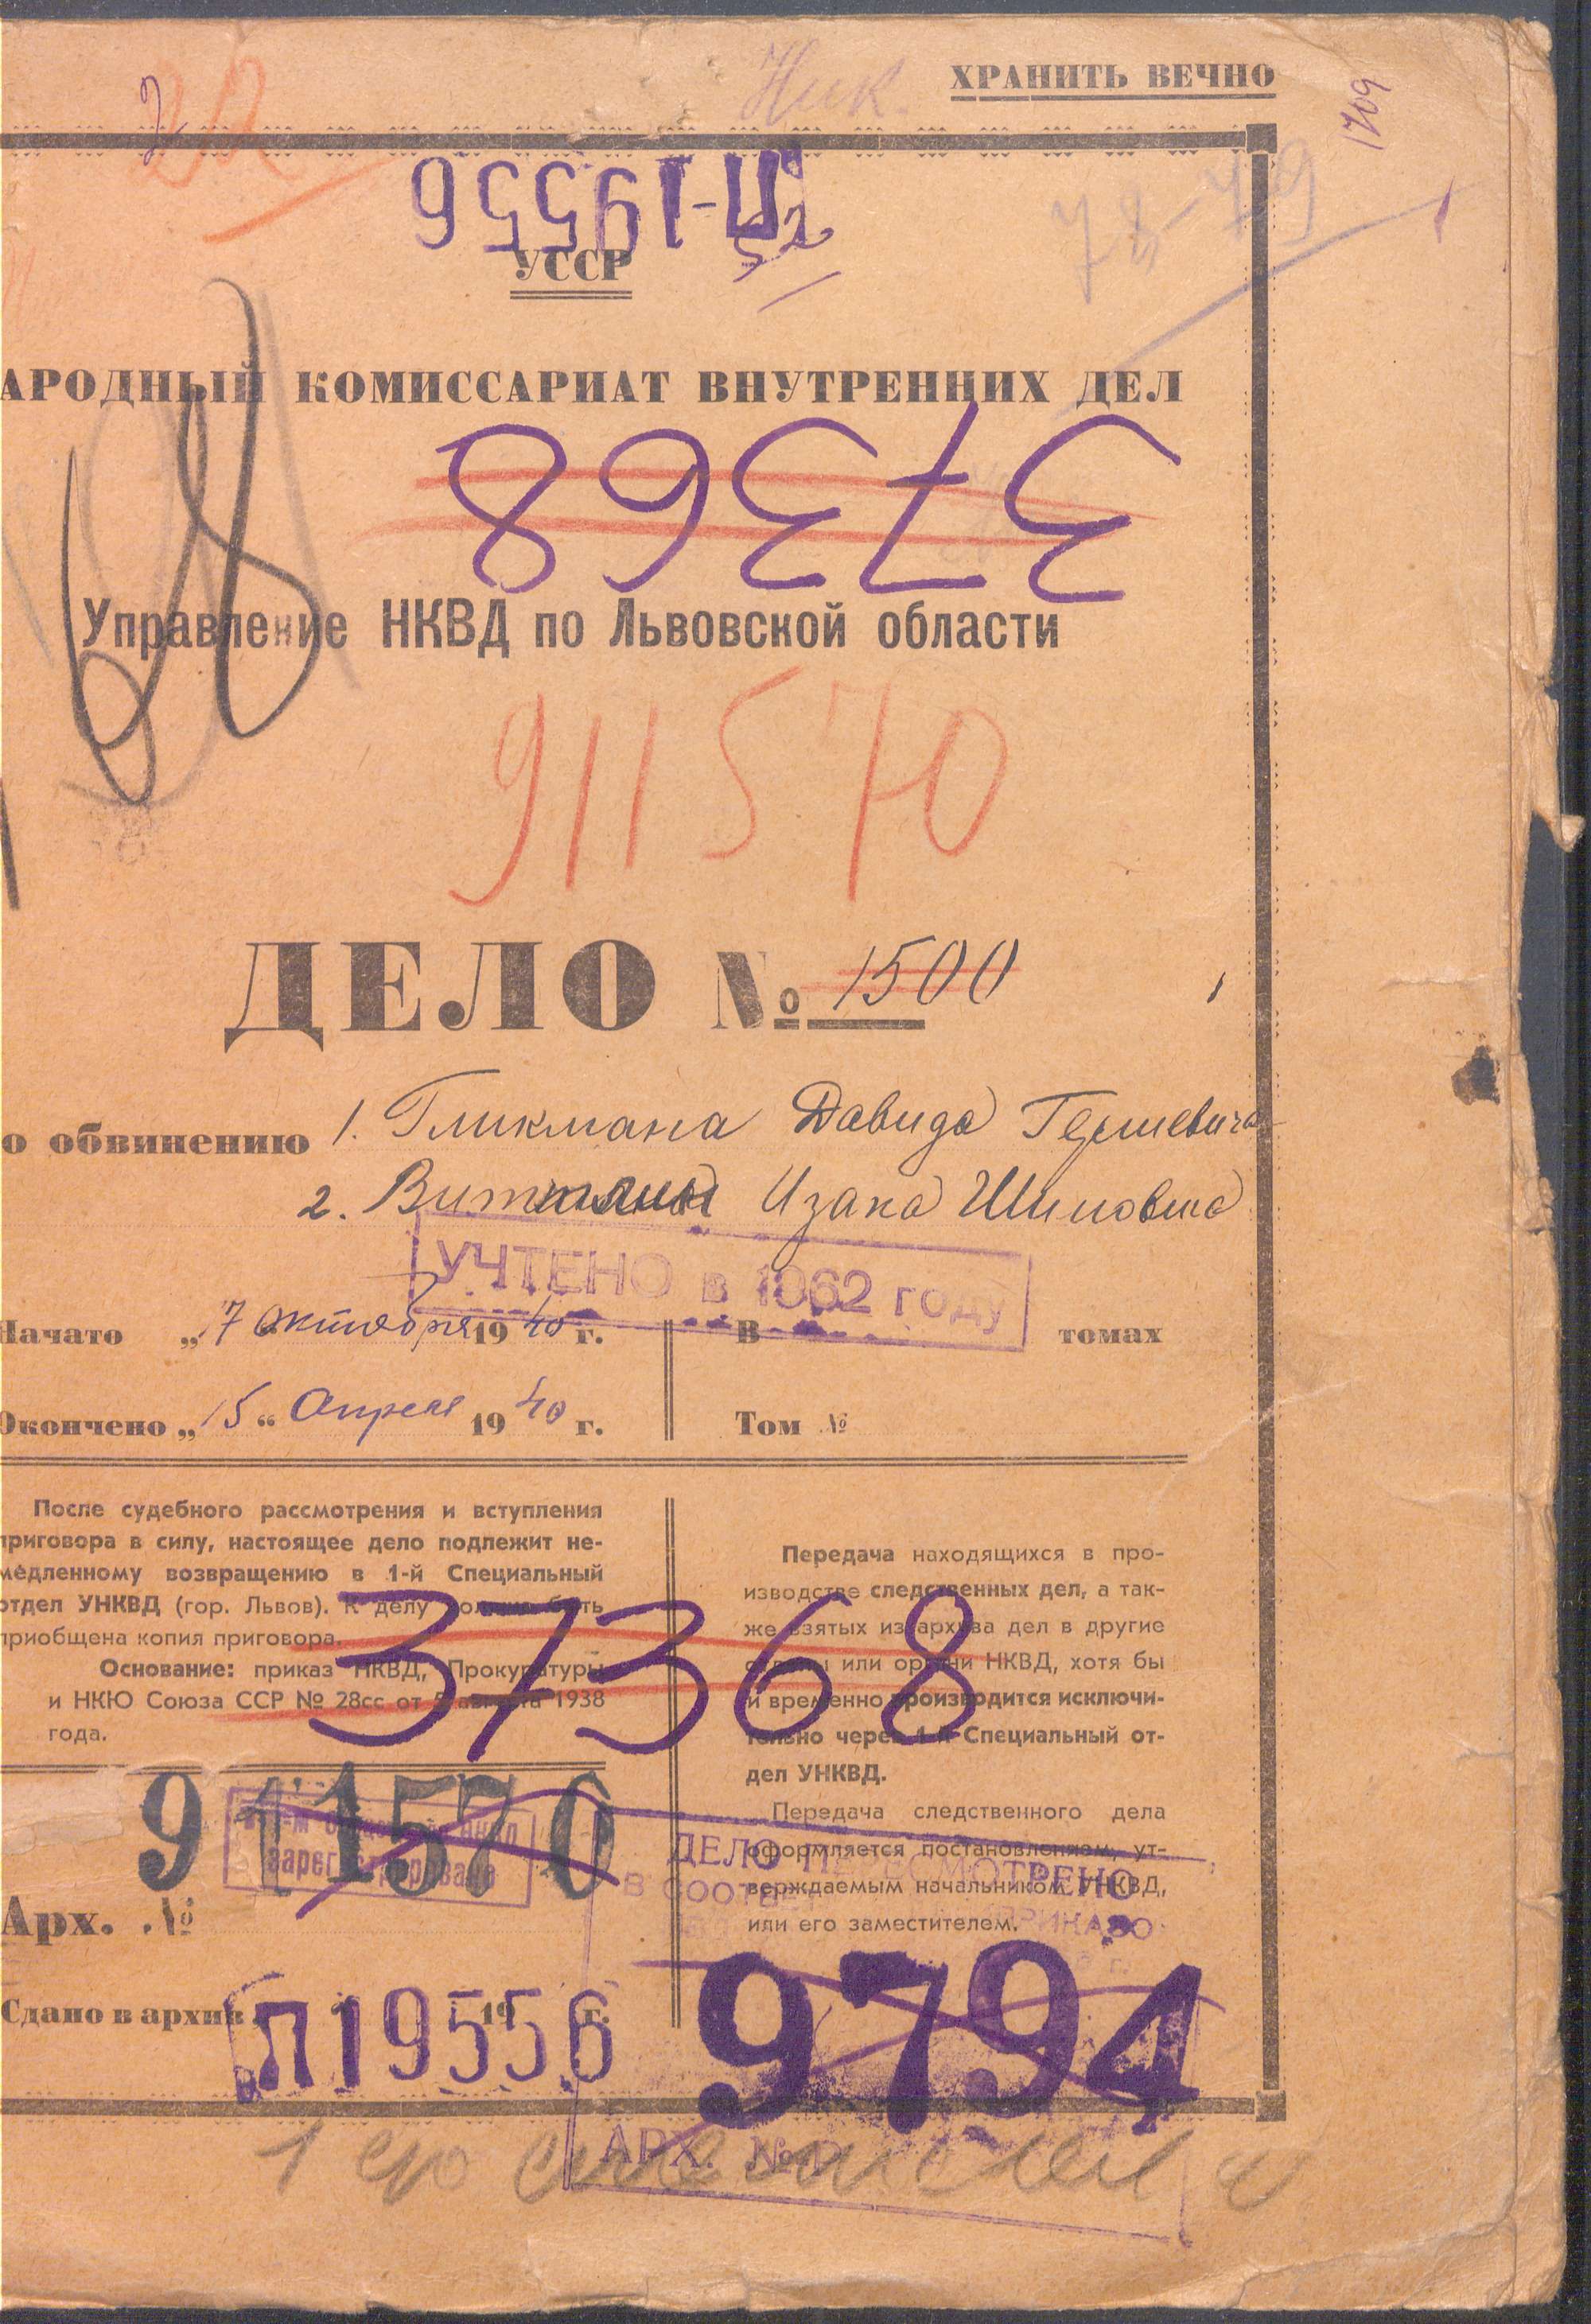 ХРАНИТЬ ВЕЧНО
1709
Ник.
22
78-79
П-19556
52
УССР
АРОДНЫЙ КОМИССАРИАТ ВНУТРЕННИХ ДЕЛ
37368
Управление НКВД по Львовской области
911570
ДЕЛО № 1500
о обвинению 1. Гликмана Давида Гершевича
2. Изака Шимовича
УЧТЕНО в 1962 году
Начато „7 октября 1940 г.
В томах
Окончено „15“ Апреля 1940 г.
Том №
После судебного рассмотрения и вступления
приговора в силу, настоящее дело подлежит не-
медленному возвращению в 1-й Специальный
отдел УНКВД (гор. Львов). К делу должна быть
приобщена копия приговора.
Основание: приказ НКВД, Прокуратуры
и НКЮ Союза ССР № 28сс от 5 августа 1938
года.
Передача находящихся в про-
изводстве следственных дел, а так-
же взятых из архива дел в другие
отделы или органи НКВД, хотя бы
и временно производится исключи-
тельно через 1-й Специальный от-
дел УНКВД.
Передача следственного дела
оформляется постановлением, ут-
верждаемым начальником УНКВД,
или его заместителем.
37368
911570
зарегистрировано
ДЕЛО ПЕРЕСМОТРЕНО
В СООТВЕТ ПРИКАЗО
Арх. №
9794
Сдано в архив 19 г.
П19556
АРХ. №